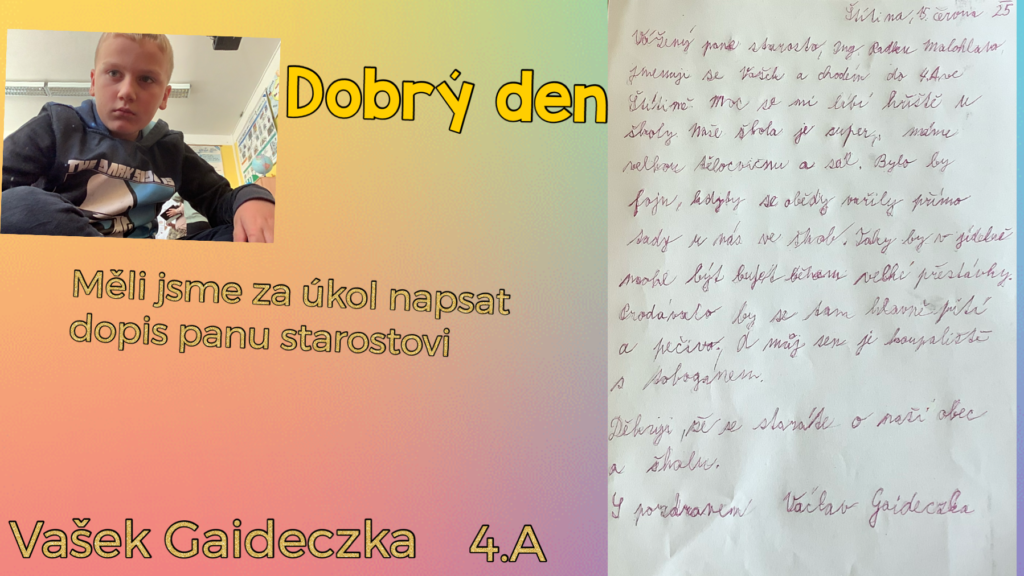 Dobrý den
Měli jsme za úkol napsat
dopis panu starostovi
Vašek Gaideczka 4.A
Štítina, 15. června 25
Vážený pane starosto, Ing. Radku Malohlavo,
jmenuji se Vašek a chodím do 4.A ve
Štítině. Moc se mi líbí hřiště u
školy. Naše škola je super, máme
velkou tělocvičnu a sál. Bylo by
fajn, kdyby se obědy vařily přímo
tady u nás ve škole. Taky by v jídelně
mohl být bufet během velké přestávky.
Prodávalo by se tam hlavně pití
a pečivo. A můj sen je koupaliště
s tobogánem.
Děkuji, že se staráte o naši obec
a školu.
S pozdravem Václav Gaideczka